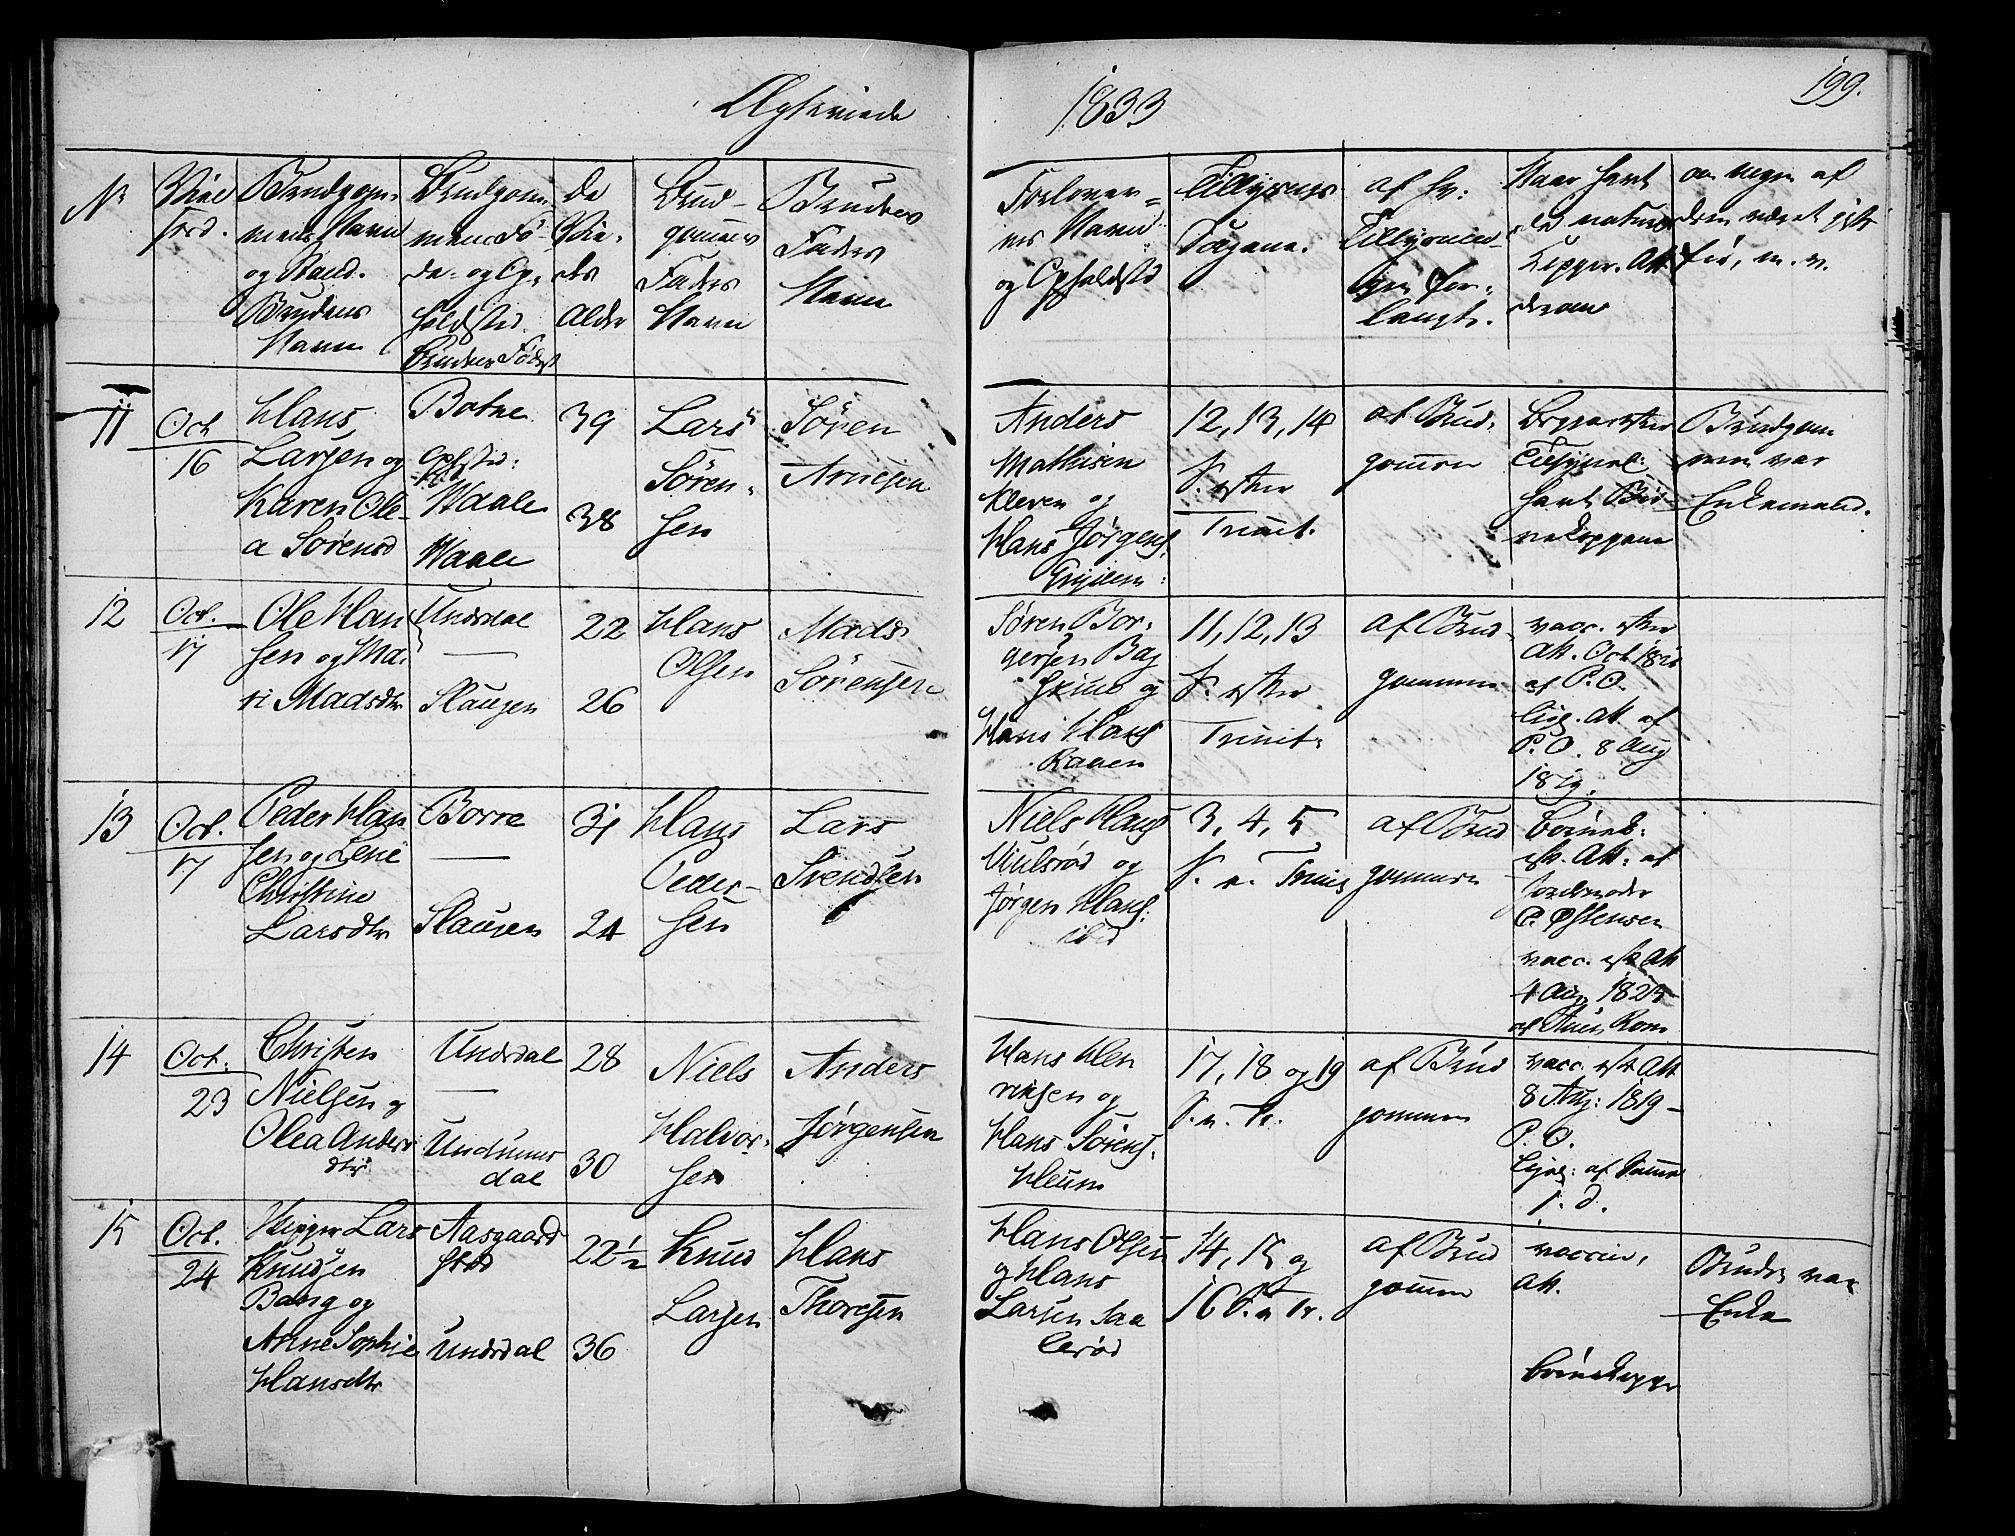 Ægteviede
1833
199.
No
Vie
ted.
Brudgom-
mens Navn
og Stand.
Brudens
Navn
Brudgom
mens Fø-
de- og Op-
holdsted.
Brudens Fødest
De
Vie-
des
Alder
Brud-
gomens
Faders
Navn
Brudens
Faders
Navn
Forlover-
nes Navn
og Opholdsted
Tillysnings
Dagene.
af hv:
Tillysnin-
gen for-
langt.
Naar havt
de naturl
Kopper. Att.
derom
om nogen af
dem været gift
før, m. v.
11
Oct
16
Hans
Larsen og
Karen Ole-
a Sørensd
Botne
Opholdsted:
Waale
Waale
39
38
Lars
Søren-
sen
Søren
Arnesen
Anders
Mathisen
Kleven og
Hans Jørgens.
12, 13, 14
S. efter
Trinit.
af Brud-
gommen
havt Bør-
nekoppene
Brudgom
men var
Enkemand.
12
Oct.
17
Ole Han
sen og Ma-
ri Madsdtr
Undrdal
—
Slagen
22
26
Hans
Olsen
Mads
Sørensen
Søren Bor-
gersen Bag
og
Hans Hans
Raaen
11, 12, 13
S. efter
Trinit.
af Brud-
gommen
vacc. efter
Att. Oct 18
af P. O.
lige. Att. af
P. O. 8 Aug
1819.
13
Oct.
17
Peder Han
sen og Lene
Christine
Larsdtr
Borre
—
Slagen
31
24
Hans
Peder-
sen
Lars
Svendsen
Niels Hans
og
Jørgen Hans:
ibid
3, 4, 5
S. e. Trinit
af Brud
gommen
Børnek:
eft. Att. af
P. Østensen
vacc. eft Att
4 Aug 1825
af
14
Oct.
23
Christen
Nielsen og
Olea Anders
dtr
Undrdal
—
Undrums
dal
28
30
Niels
Halvor-
sen
Anders
Jørgensen
Hans Hen
riksen og
Hans Sørens.
Heum
17, 18 og 19
S. e. Tr.
af Brud
gommen
vacc. eft Att
8 Aug: 1819-
P. O.
lige: af Samme
s. d.
15
Oct.
24
Skipper Lars
Knudsen
Bang og
Anne Sophie
Hansdtr
Aasgaard
strd
Undrdal
22 1/2
36
Knud
Larsen
Hans
Thoresen
Hans Olsen
og Hans
Larsen Saa
lerød
14, 15 og
16 S. e Tr.
af Brud
gommen
vaccin,
Att.
Børnekopper
Bruden var
Enke